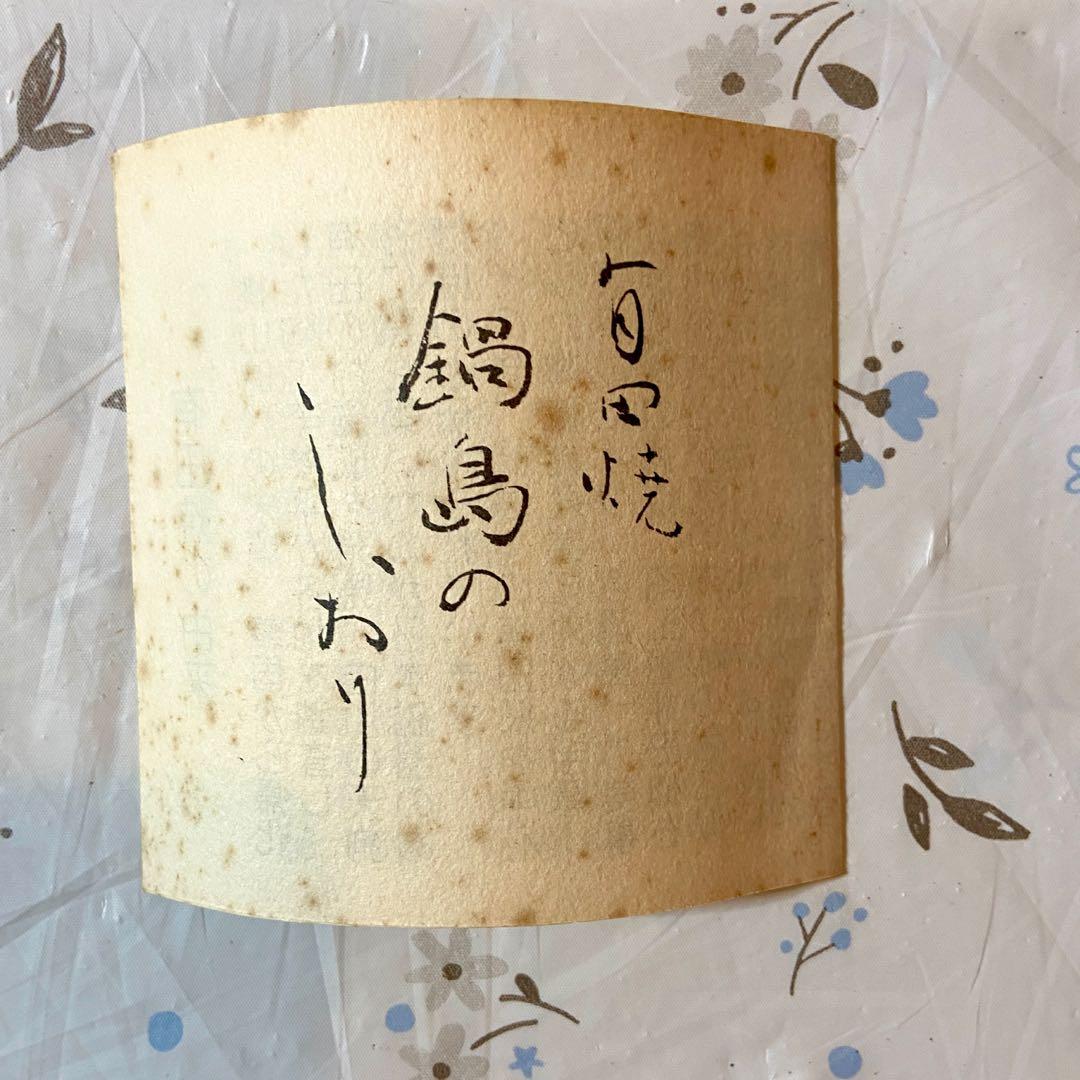 有田焼
鍋島の
しおり